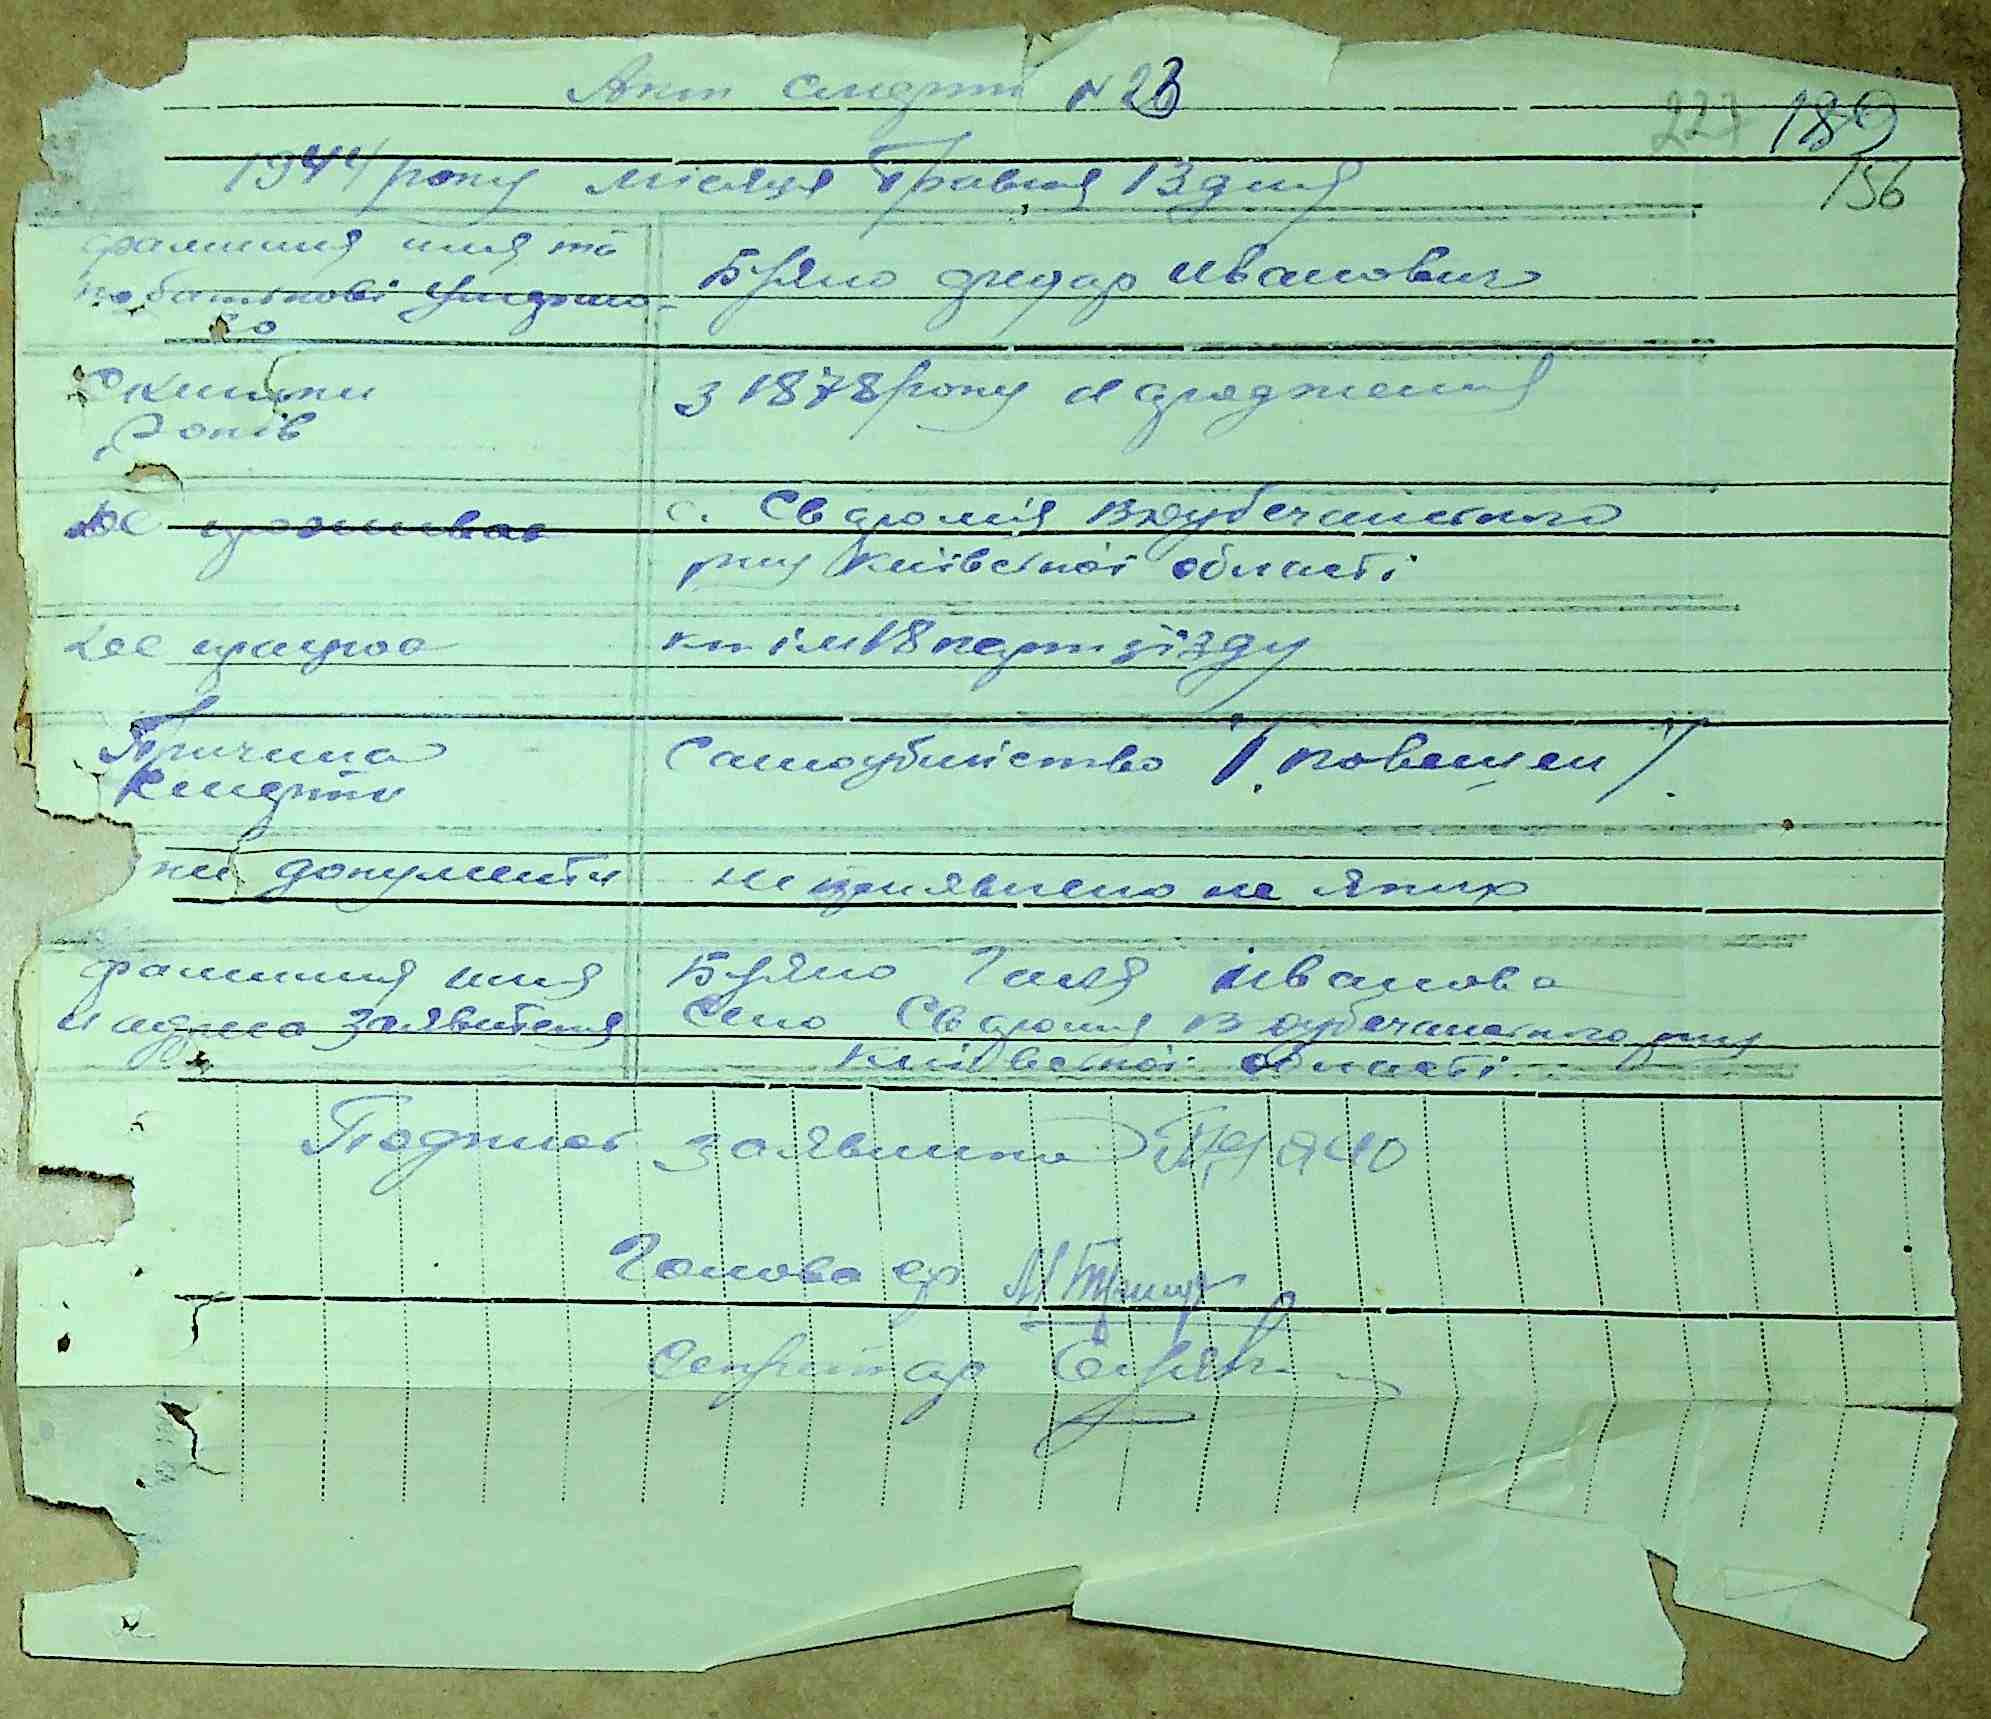 Акт смерти N 23
223 189
1944 року місяця Травня 13 дня
156
фамилия имя та
по батькові умерло-
го
Буяло Федар Иванович
Скильки
Років
з 1878 року народження
Де проживав
с. Сваромія В Дубечанського
р-ну Київської області
Де працював
к-п ім 18 парт зїзду
Причина
смерти
Самоубийство (повешен).
документи
не предявлено не яких
фамилия имя
и адреса заявителя
Буяло Галя Иванова
Село Сваромия В Дубечанського р-ну
Київської області
Подпись заявника
Голова с/р
Секретар